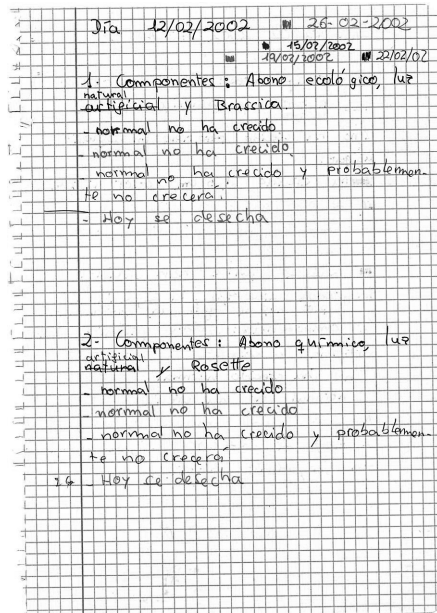 Día 12/02/2002 26-02-2002
15/02/2002
19/02/2002 22/02/02
1- Componentes: Abono ecológico, luz
natural
artificial y Brassica.
- normal no ha crecido
- normal no ha crecido
- normal no ha crecido y probablemen-
te no crecerá.
- Hoy se desecha
2- Componentes: Abono químico, luz
artificial
natural y Rosette
- normal no ha crecido
- normal no ha crecido
- normal no ha crecido y probablemen-
te no crecerá
26 - Hoy se desecha